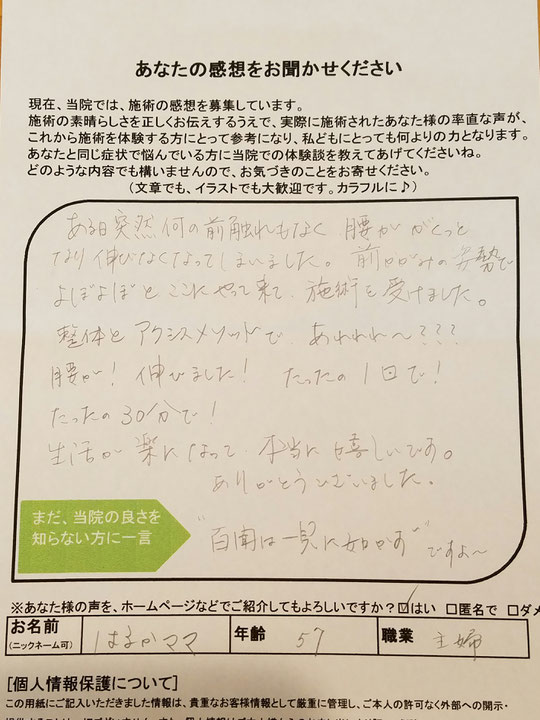 あなたの感想をお聞かせください
現在、当院では、施術の感想を募集しています。
施術の素晴らしさを正しくお伝えするうえで、実際に施術されたあなた様の率直な声が、
これから施術を体験する方にとって参考になり、私どもにとっても何よりの力となります。
あなたと同じ症状で悩んでいる方に当院での体験談を教えてあげてくださいね。
どのような内容でも構いませんので、お気づきのことをお寄せください。
(文章でも、イラストでも大歓迎です。カラフルに♪)
ある日突然何の前触れもなく 腰が がくっと
なり 伸びなくなってしまいました。前かがみの姿勢で
よぼよぼと ここにやって来て、施術を受けました。
整体と アクシスメソッドで、あわわわ〜???
腰が! 伸びました! たったの1回で!
たったの30分で!
生活が 楽になって、本当に嬉しいです。
ありがとうございました。
まだ、当院の良さを
知らない方に一言
"百聞は一見に如かず" ですよ〜
※あなた様の声を、ホームページなどでご紹介してもよろしいですか?☑はい □匿名で □ダメ
お名前
(ニックネーム可)
はるかママ
年齢
57
職業
主婦
[個人情報保護について]
この用紙にご記入いただきました情報は、貴重なお客様情報として厳重に管理し、ご本人の許可なく外部への開示・